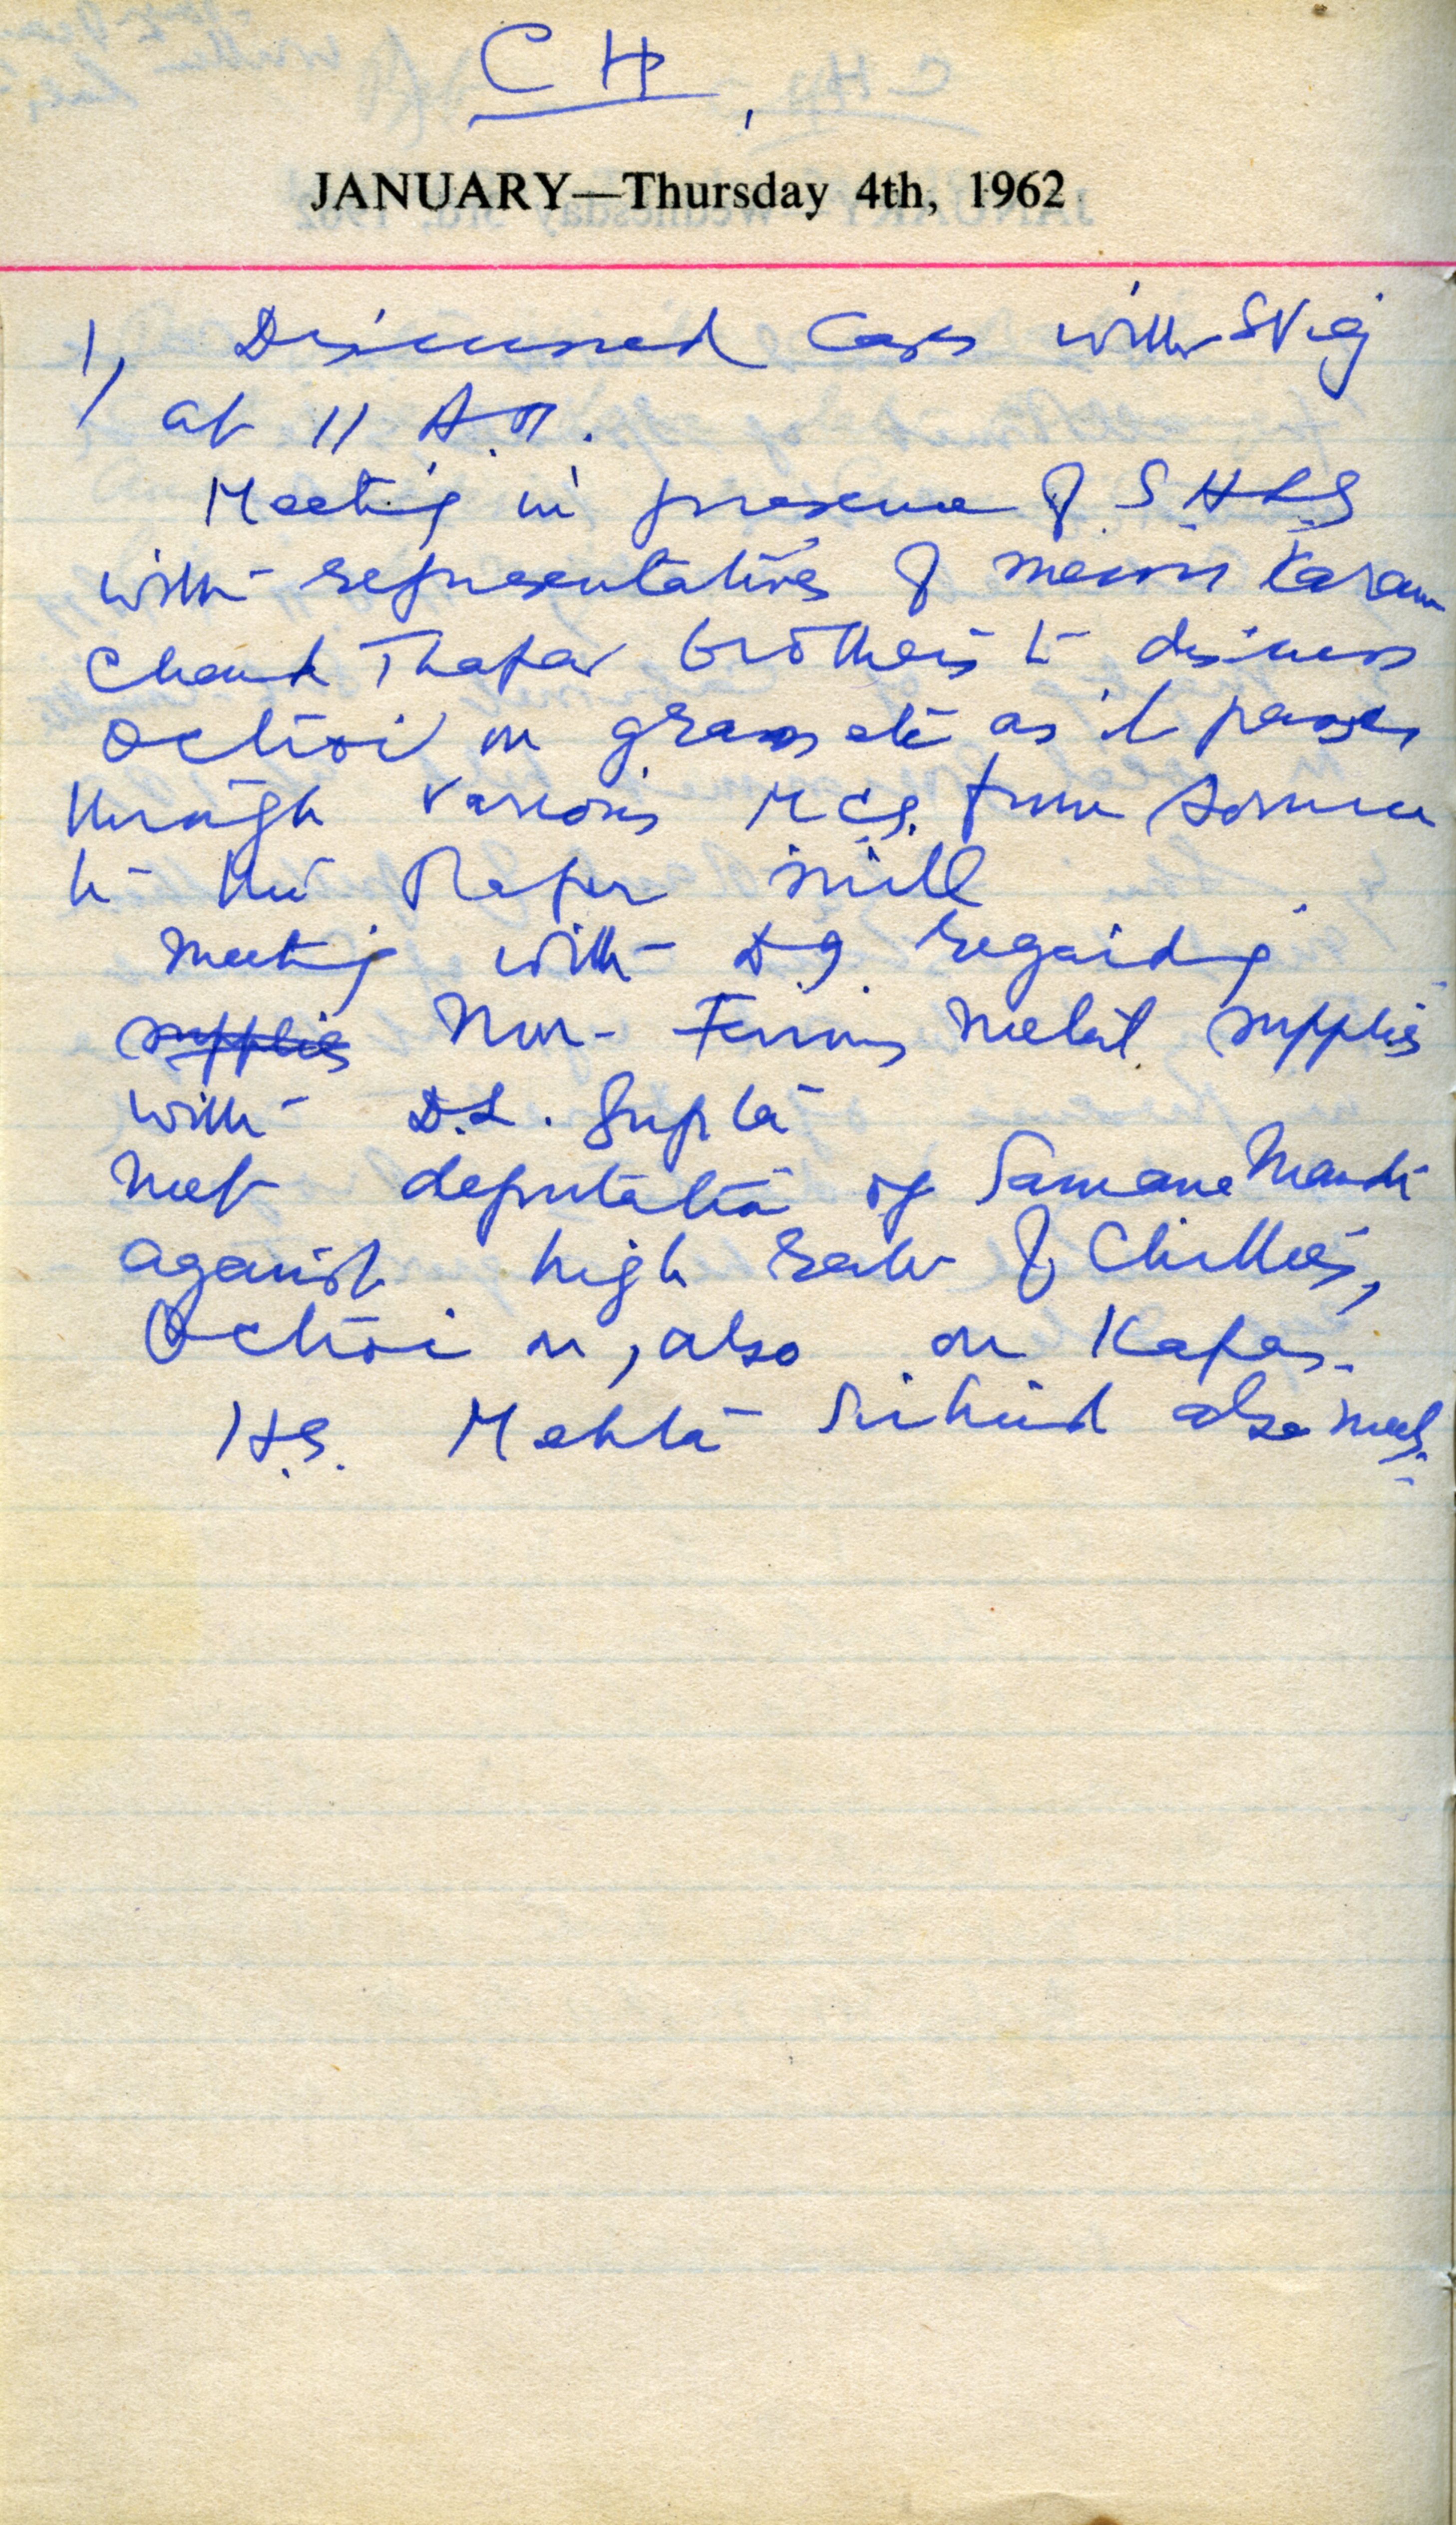 CH
JANUARY—Thursday 4th, 1962
1) Discussed Cases with S Vig
at 11 A.M.
Meeting in presence of S H L S
with representatives of messrs Karam
Chand Thapar brothers to discuss
Octroi on grass etc as it passes
through various M Cs. from source
to the Paper mill
Meeting with D I regarding
supplies Non-Ferrous metal supplies
with D.L. Gupta
Met deputation of Samana Mandi
against high rate of Chillies,
Octroi on, also on Kapas.
H.S. Mehta Sirhind also met.